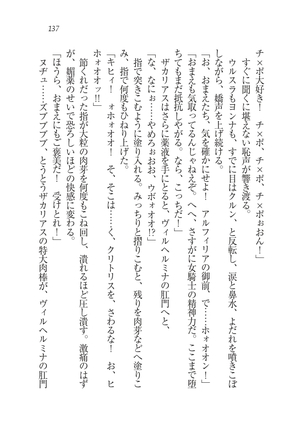 137
チ×ポ大好き! チ×ポ、チ×ポ、チ×ポぉおん!」
すぐに聞くに堪えない恥声が響き渡る。
ウルスラもヨンナも、すでに目はクルン、と反転し、涙と鼻水、よだれを噴きこぼ
しながら、嬌声を上げ続ける。
「お、おまえたち、気を確かにせよ! アルフィリアの御前、で……ホォオオン!」
「おまえも気取ってるんじゃねえぞ。へへ、さすがに女騎士の精神力だ。ここまで堕
ちてもまだ抵抗しやがる。なら、こっちだ!」
ザカリアスはさらに薬液を手にとると、ヴィルヘルミナの肛門へと、
「な、なにぉ……やめろぉおお、ウボォオオ!?」
指で突きこむように塗り入れる。みっちりと指でこむと、残りを肉芽などへ塗りこ
み、指で何度もひねり上げた。
「キヒィ! ォホオオン! そ、そこは……く、クリトリスを、さわるな! お、ヒ
ホォオオッ!!」
節くれだった指が大粒の肉芽を何度もこね回し、潰れるほど圧し潰す。激痛のはず
が、媚薬のせいで恐ろしいほどの快感に変わる。
「ほうら、おまえにもご褒美だ! 受けとれ!」
ヌヂュ……ズブブブブ、とうとうザカリアスの特大肉棒が、ヴィルヘルミナの肛門